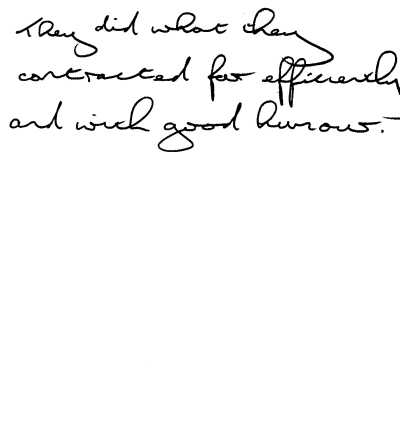 They did what they
contracted for efficiently
and with good humour.